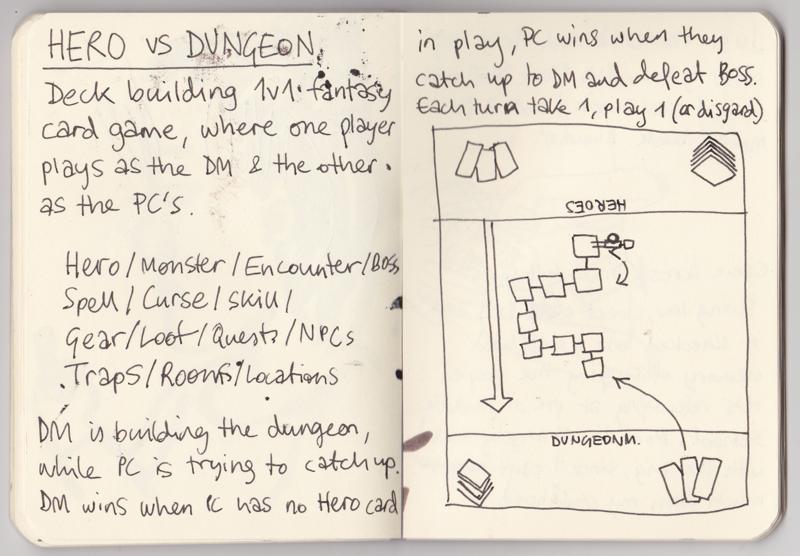 HERO VS DUNGEON
Deck building 1v1 fantasy
card game, where one player
plays as the DM & the other
as the PC's.
Hero/Monster/Encounter/Boss
Spell/Curse/Skill/
Gear/Loot/Quests/NPCs
Traps/Rooms/Locations
DM is building the dungeon,
while PC is trying to catch up.
DM wins when PC has no Hero card
in play, PC wins when they
catch up to DM and defeat Boss.
Each turn take 1, play 1 (or disgard)
HEROES
DUNGEONM.